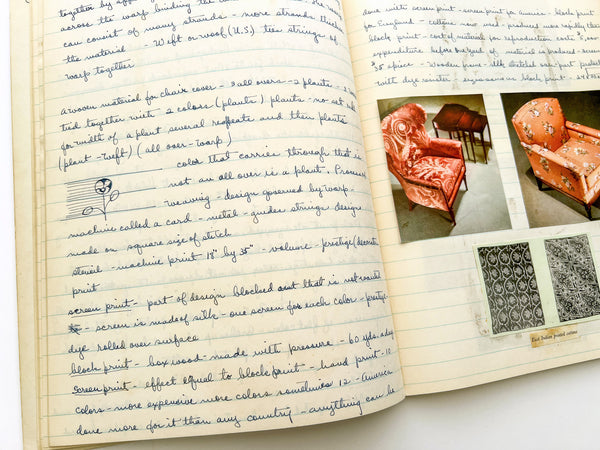 together by
across the warp binding the
can consist of many strands - more strands thicker
the material - Weft or woof (U.S.) ties strings of
warp together
a woven material for chair cover - 3 all overs - 2 plants - 2
tied together with 2 colors (plants) plants - no set
for width of a plant several repeats and then plants
(plant - weft) (all over - warp)
color that carries through that is
not an all over is a plant.
weaving - design governed by warp -
machine called a card - metal - guides strings design
made on square size of stitch
stencil - machine print 18" by 35" - volume - prestige
print
screen print - part of design blocked out that is not wanted
- screen is made of silk - one screen for each color -
dye rolled over surface
block print - boxwood - made with pressure - 60 yds. a day
screen print - effect equal to block print - hand print - 10
colors - more expensive more colors sometimes 12 - America
done more for it than any country - anything can be
done with screen print - screen print in America - block print
for England - cottons now used - produced more rapidly than
block print - cost of material for reproduction costs
expenditure before one yard of material is produced -
$35 apiece - Wooden frame - silk stretched over - part
with dye resister - expensive as block print -
East Indian printed cottons